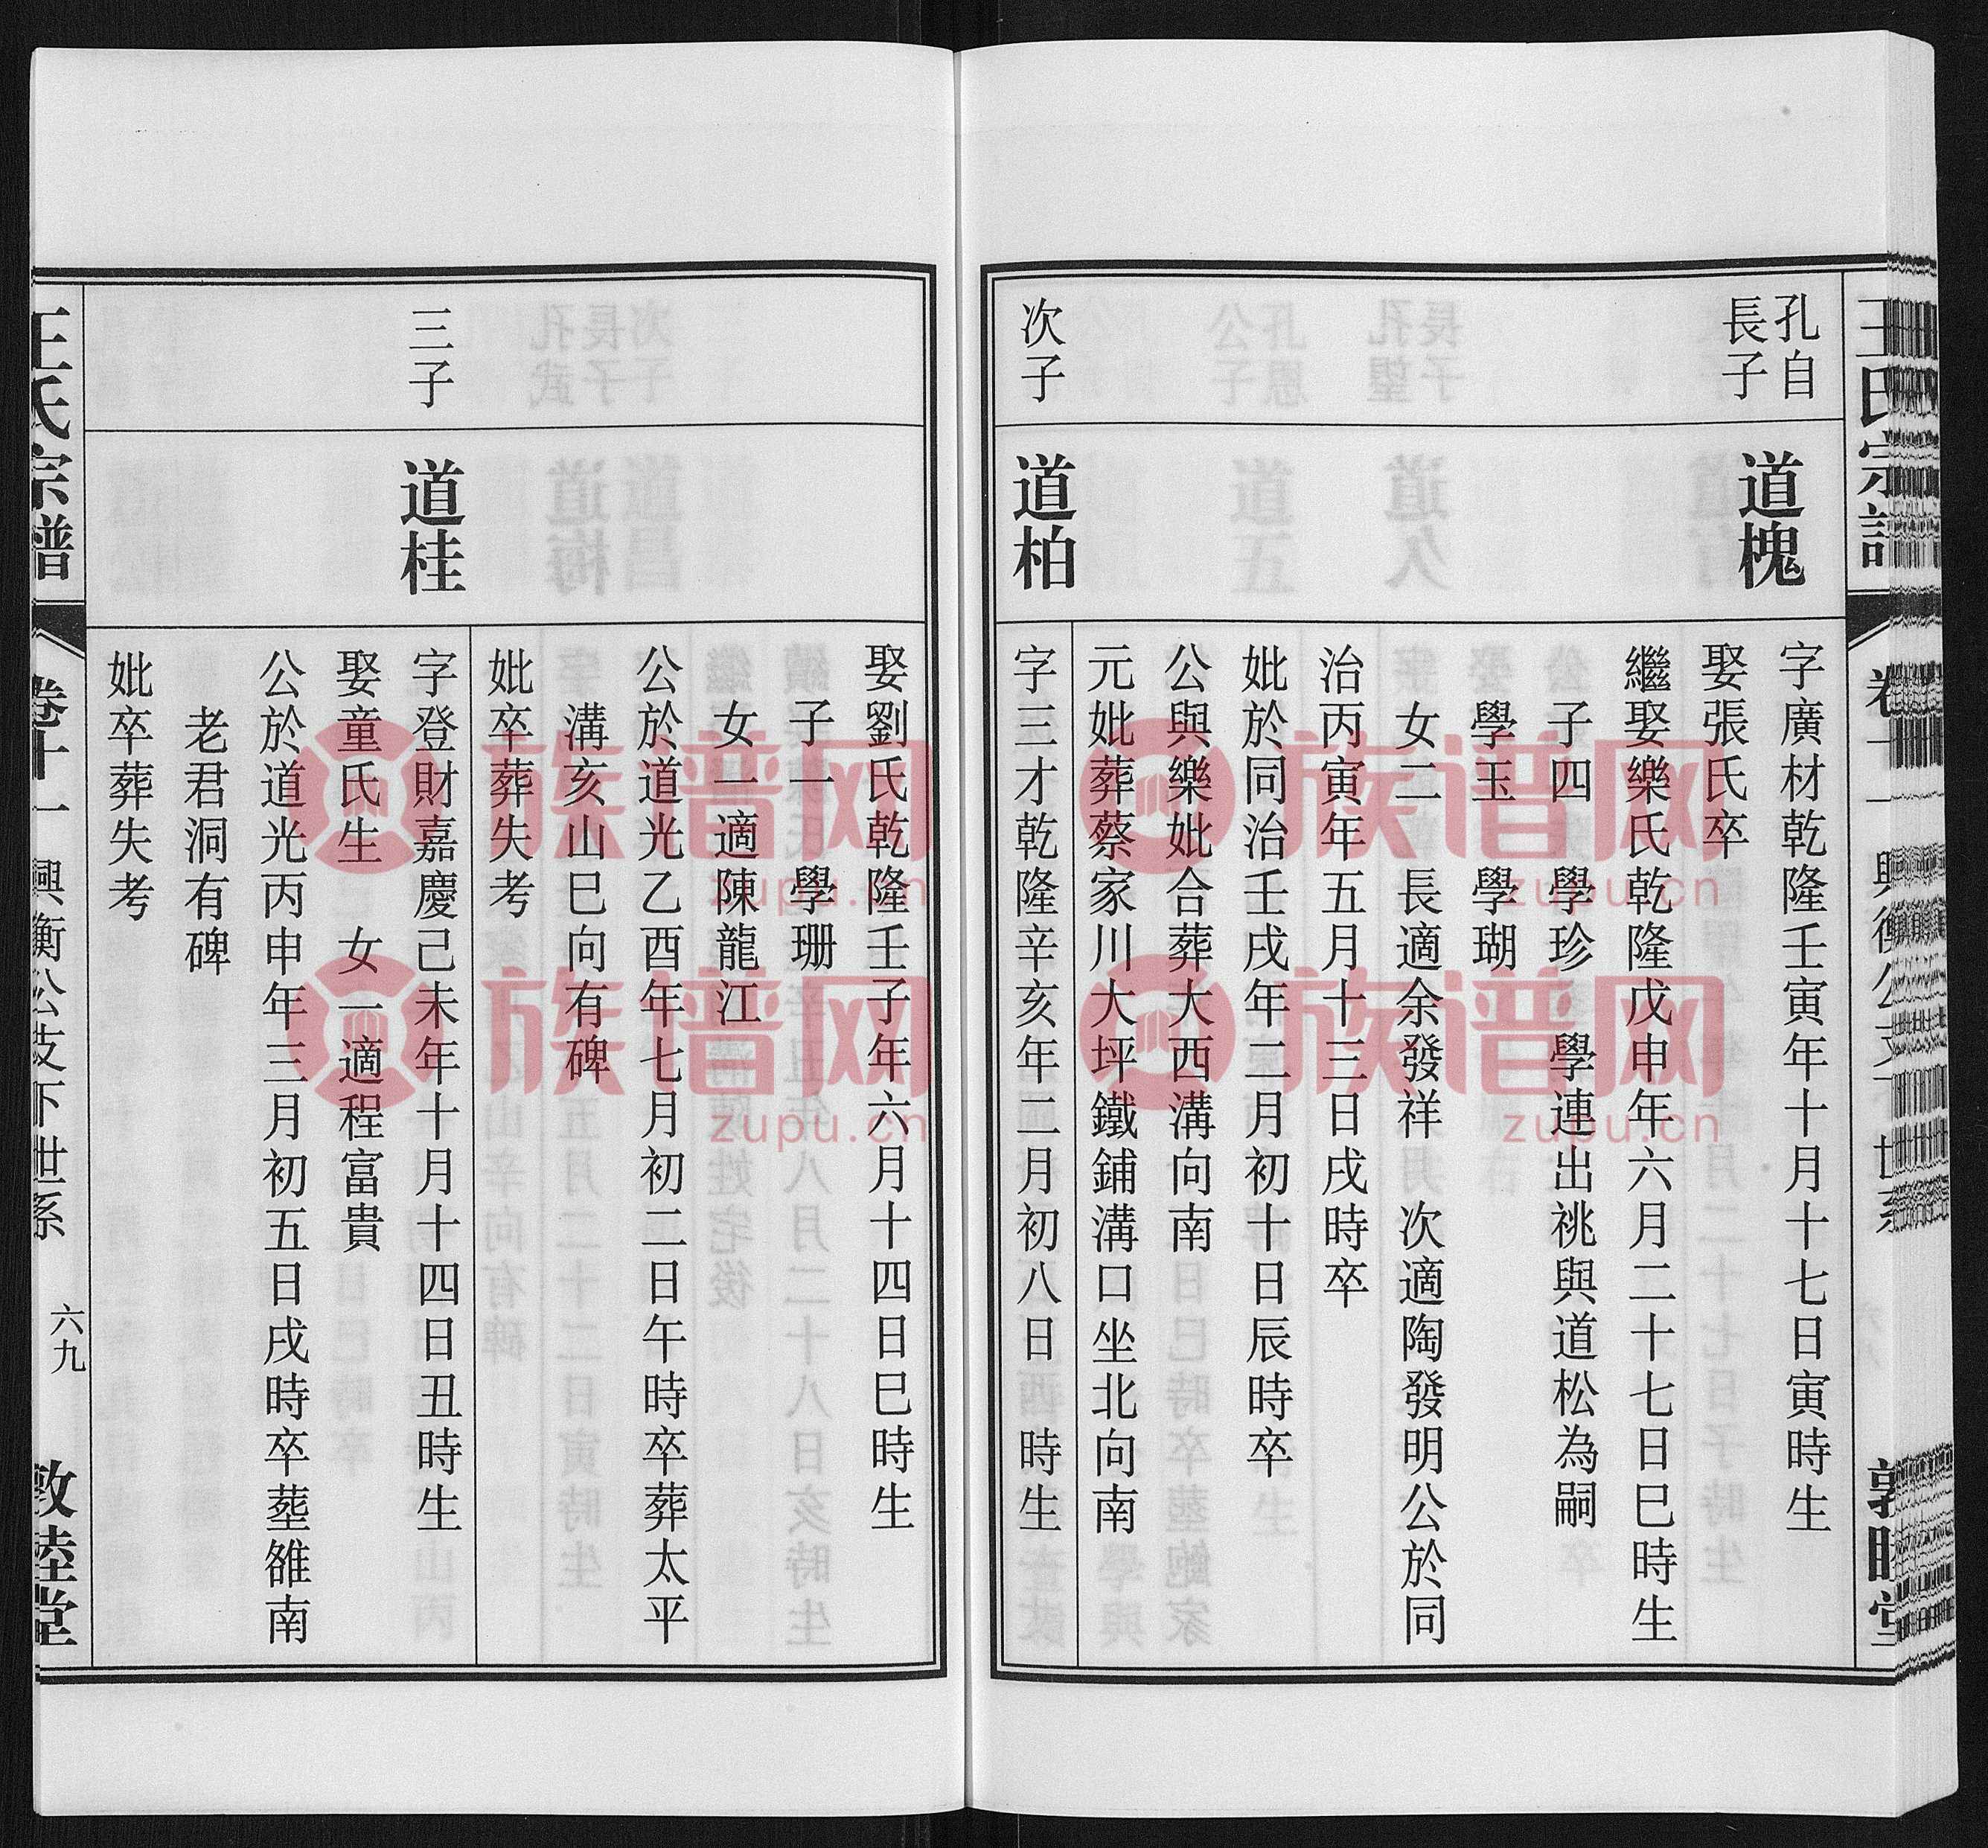 孔自
長子
道槐
字廣材乾隆壬寅年十月十七日寅時生
娶張氏卒
繼娶樂氏乾隆戊申年六月二十七日巳時生
子四　學珍　學連出祧與道松為嗣
學玉　學瑚
女二　長適余發祥　次適陶發明公於同
治丙寅年五月十三日戌時卒
妣於同治壬戌年二月初十日辰時卒
公與樂妣合葬大西溝向南
元妣葬蔡家川大坪鐵鋪溝口坐北向南
次子
道柏
字三才乾隆辛亥年二月初八日　時生
娶劉氏乾隆壬子年六月十四日巳時生
子一　學珊
女一適陳龍江
公於道光乙酉年七月初二日午時卒葬太平
溝亥山巳向有碑
妣卒葬失考
三子
道桂
字登財嘉慶己未年十月十四日丑時生
娶童氏生　女一適程富貴
公於道光丙申年三月初五日戌時卒塟雒南
老君洞有碑
妣卒葬失考
王氏宗譜
卷十一
興衡公支下世系
六九
敦睦堂
族谱网
zupu.cn
族谱网
zupu.cn
族谱网
zupu.cn
族谱网
zupu.cn